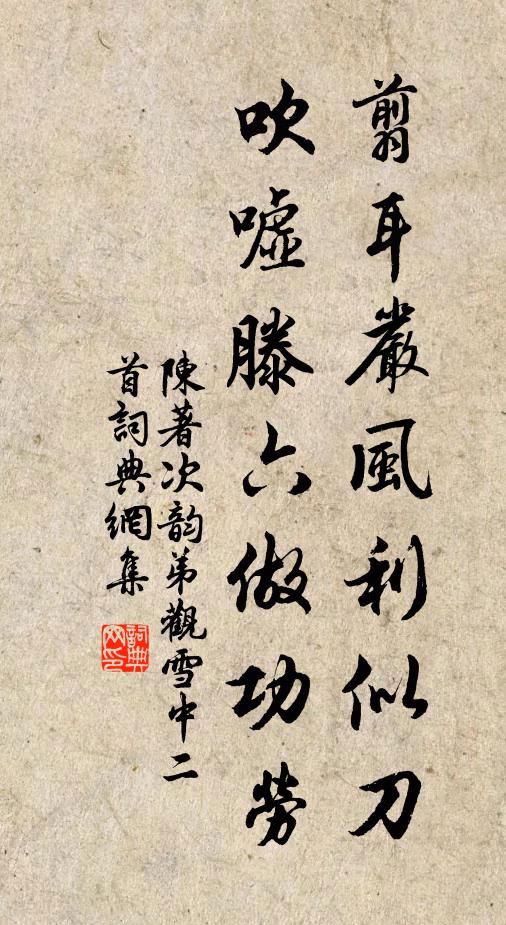 翦耳嚴風利似刀
吹噓滕六做功勞
陳著次韵弟觀雪中二
首詞典網集
詞典网印